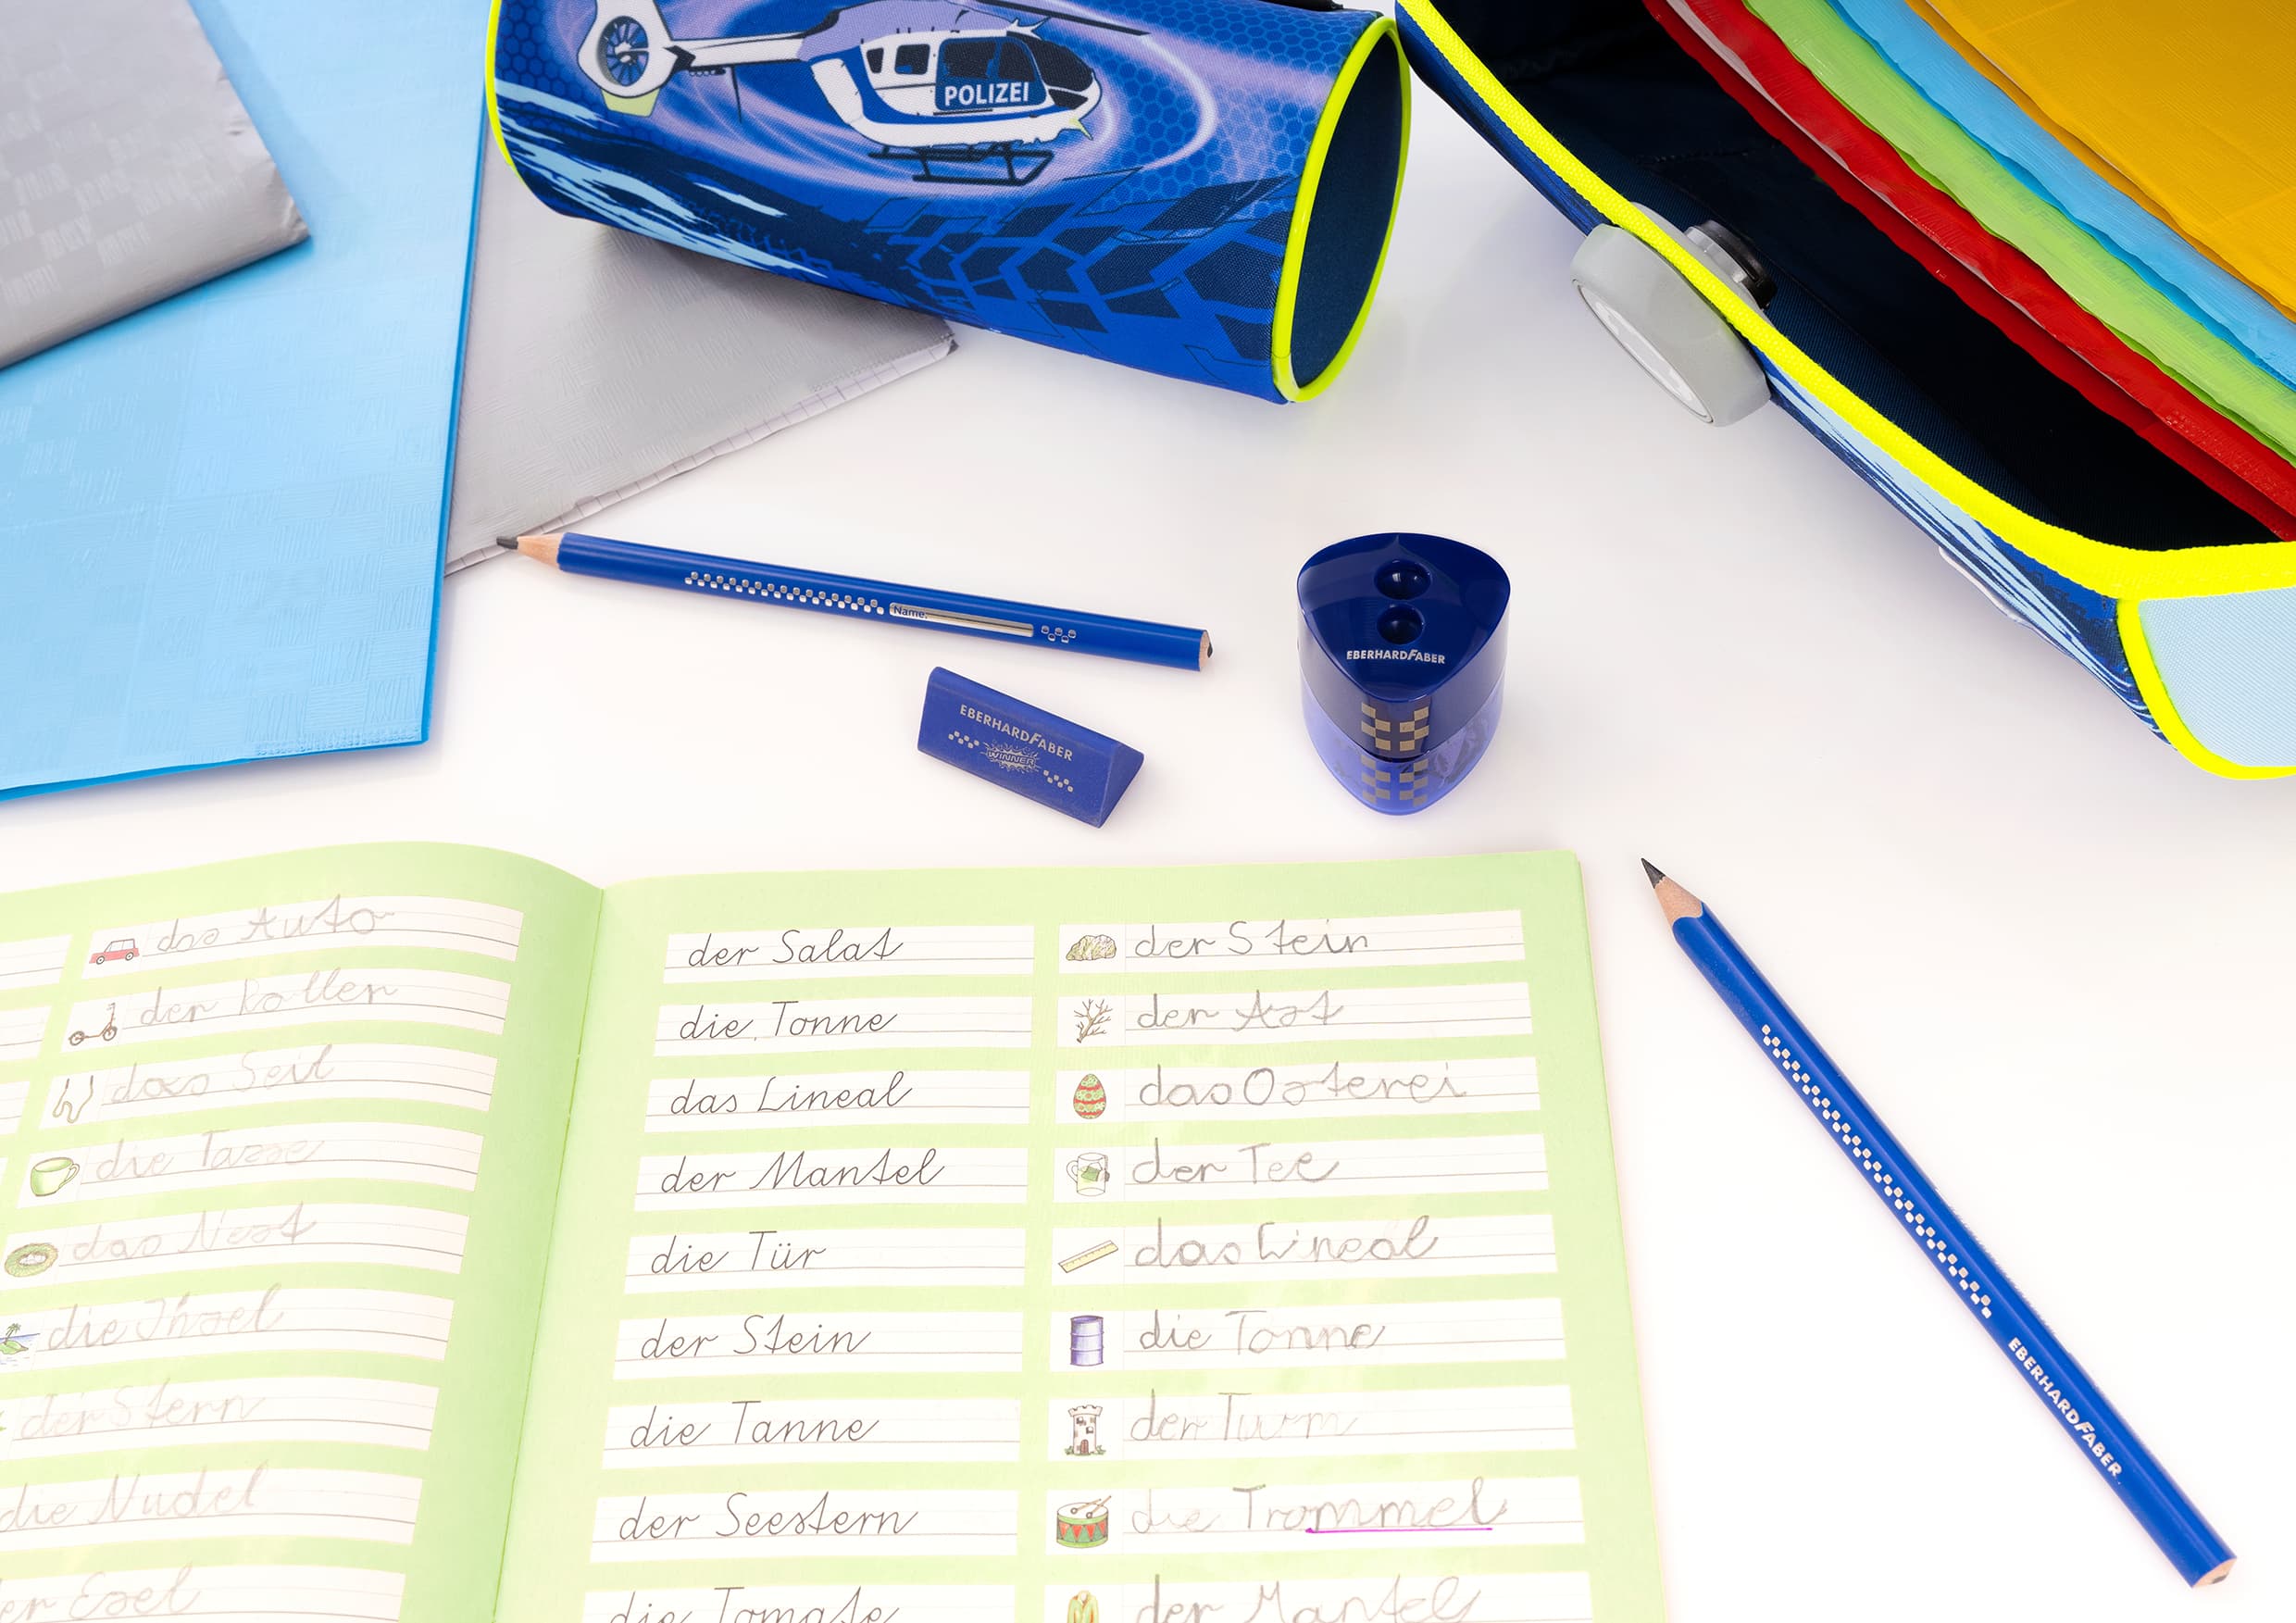 POLIZEI
Name:
EBERHARDFABER
EBERHARDFABER
WINNER
das Auto
der Roller
das Seil
die Tasse
das Nest
die Insel
der Stern
die Nudel
er Esel
der Salat
die Tonne
das Lineal
der Mantel
die Tür
der Stein
die Tanne
der Seestern
die Tomate
der Stein
der Ast
das Osterei
der Tee
das Lineal
die Tonne
der Turm
die Trommel
der Mantel
EBERHARDFABER